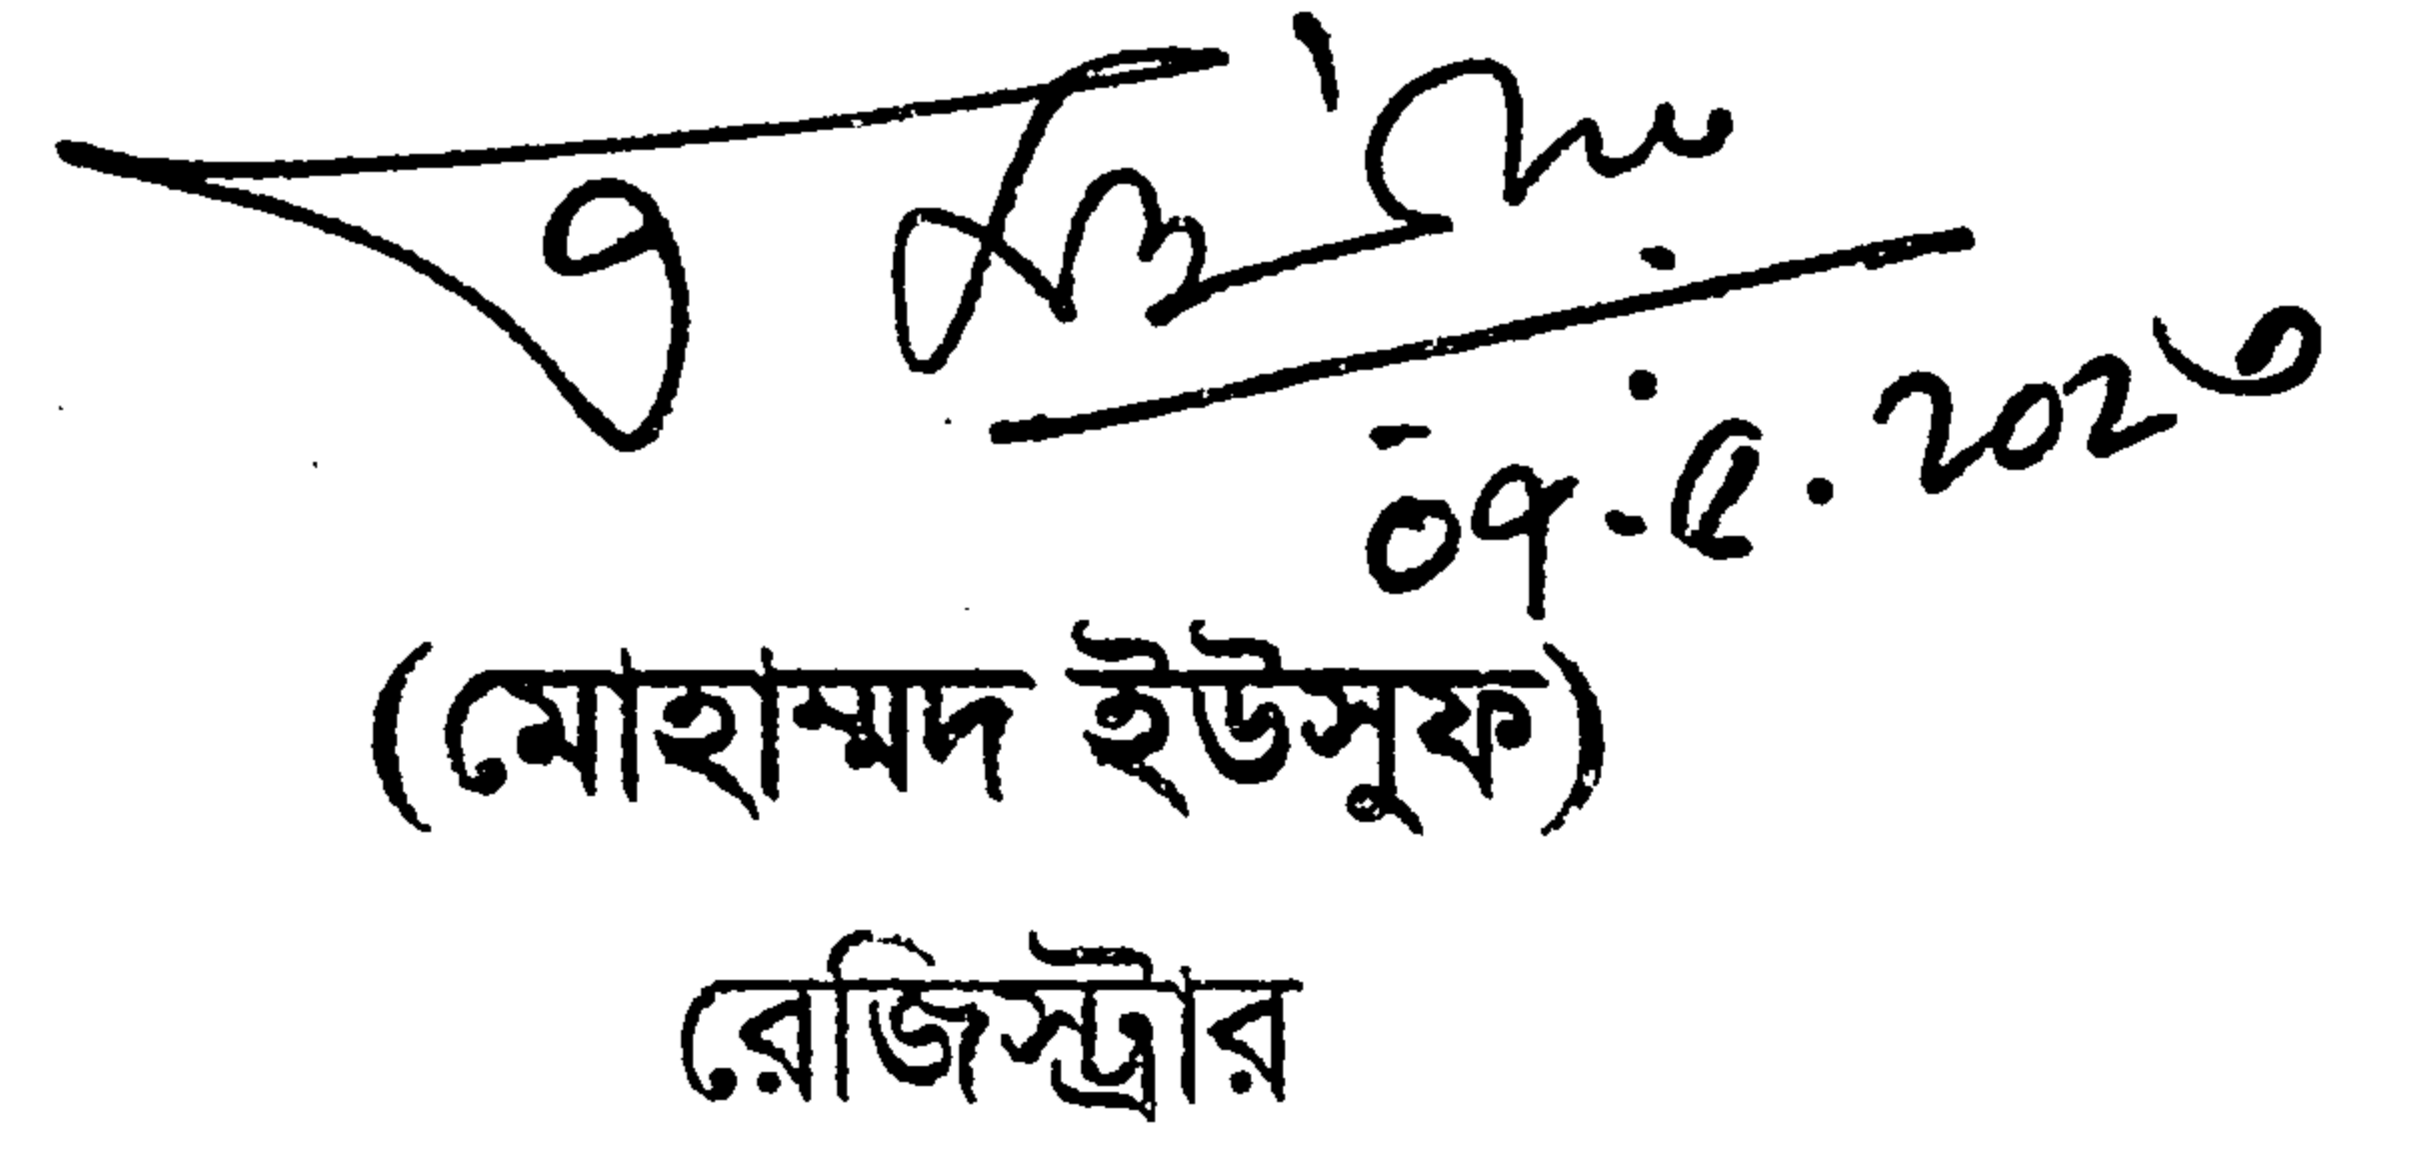 ০৭.৫.২০২৩
(মোহাম্মদ ইউসূফ)
রেজিস্ট্রার